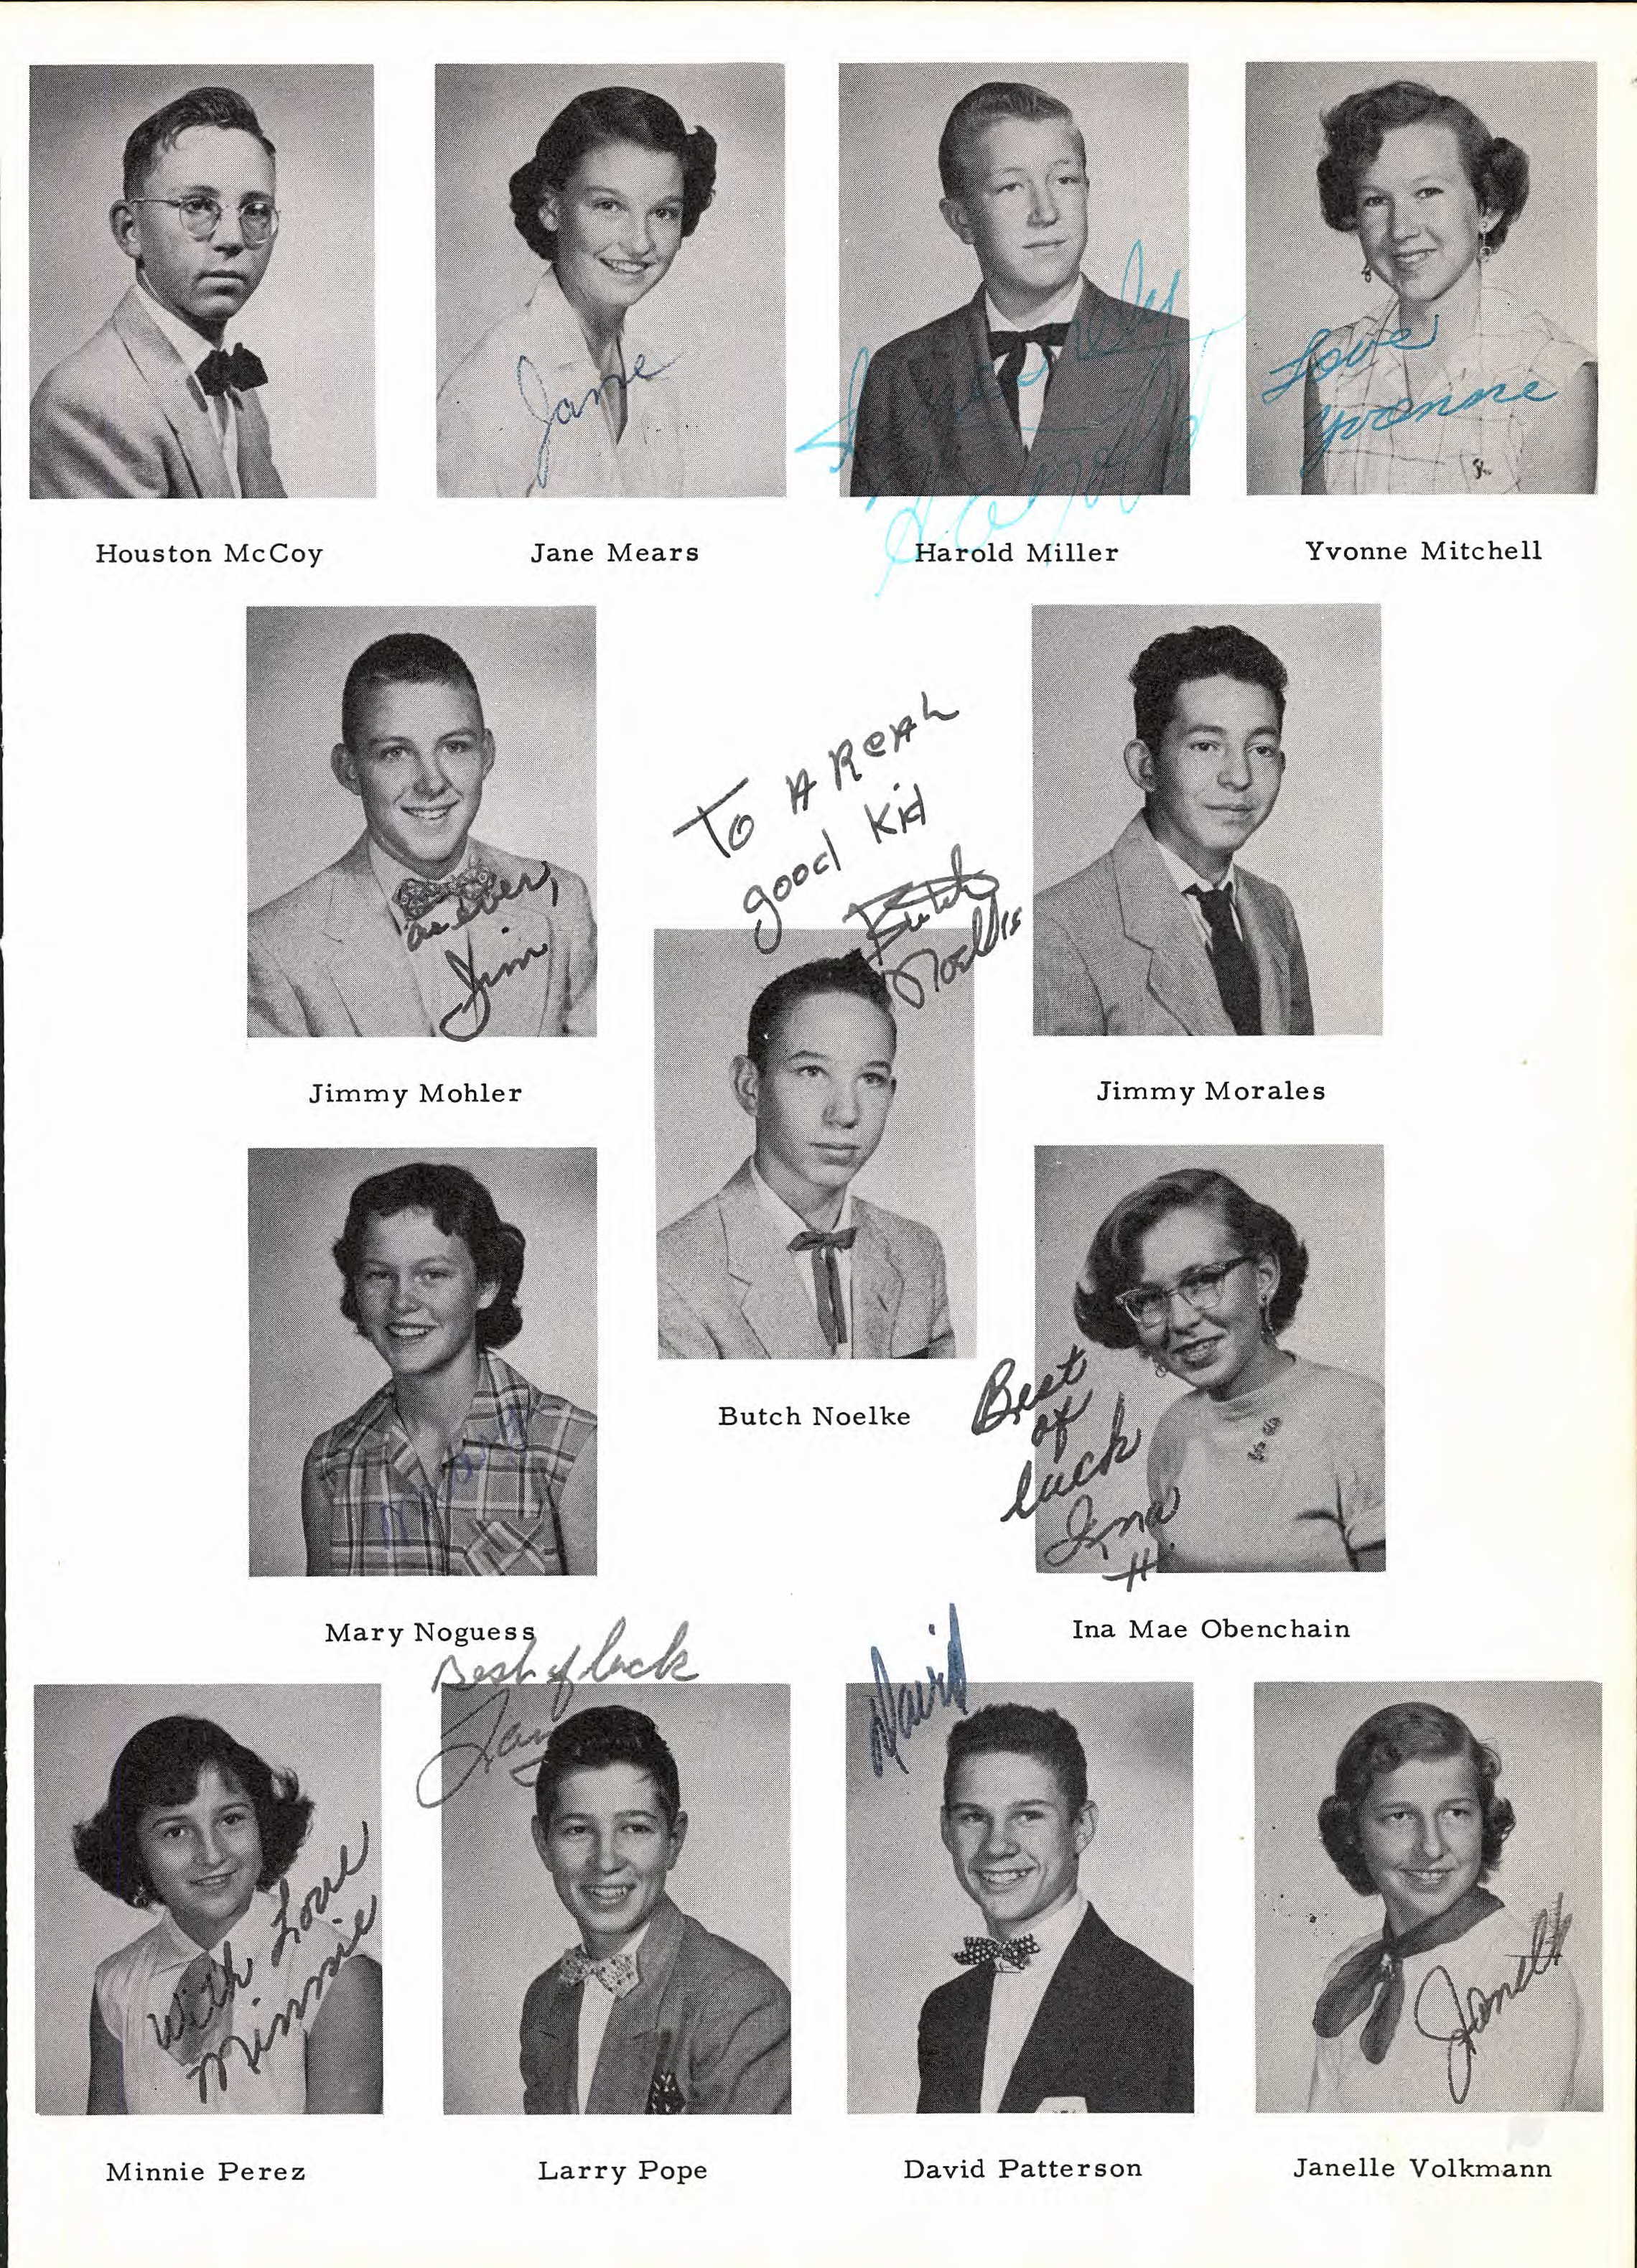 Jane
Sincerely
Harold
Love
Yvonne
Houston McCoy
Jane Mears
Harold Miller
Yvonne Mitchell
To A ReAL
good Kid
Butch
as ever,
Jim
Jimmy Mohler
Jimmy Morales
Mary
Butch Noelke
Best
of
luck
Ina
Mary Noguess
Ina Mae Obenchain
Best of luck
Larry
David
With Love
Minnie
Janelle
Minnie Perez
Larry Pope
David Patterson
Janelle Volkmann